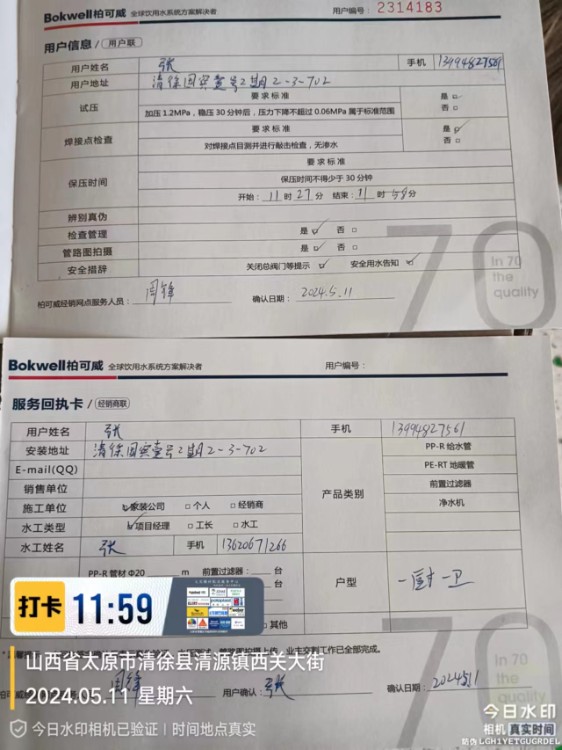 Bokwell柏可威 全球饮用水系统方案解决者 用户编号： 2314183
用户信息/ 用户联
用户姓名 张 手机
用户地址 清徐国宾壹号2期2-3-702
试压 要求标准 是 否
加压 1.2MPa，稳压 30 分钟后，压力下降不超过 0.06MPa 属于标准范围
焊接点检查 要求标准 是 否
对焊接点目测并进行敲击检查，无渗水
保压时间 要求标准
保压时间不得少于 30 分钟
开始：11 时 27 分 结束：11 时 58 分
辨别真伪
检查管理 是 否
管路图拍摄 是 否
安全措辞 关闭总阀门等提示 安全用水告知
70
In 70
the
quality
柏可威经销网点服务人员： 闫锋 确认日期： 2024.5.11
Bokwell柏可威 全球饮用水系统方案解决者 用户编号：
服务回执卡/ 经销商联
用户姓名 张 手机 13994827561
安装地址 清徐国宾壹号2期2-3-702
E-mail(QQ)
销售单位
施工单位 家装公司 个人 经销商
水工类型 项目经理 工长 水工
水工姓名 张 手机 13620671266
产品类别
PP-R 给水管
PE-RT 地暖管
前置过滤器
净水机
PP-R 管材 Φ20 m 前置过滤器： 台
台
其他
户型 一厨一卫
业主交割工作已全部完成。
闫锋 用户确认： 张 确认日期： 2024.5.11
70
In 70
the
quality
打卡 11:59
山西省太原市清徐县清源镇西关大街
2024.05.11 星期六
今日水印相机已验证 | 时间地点真实
今日水印
相机 真实时间
防伪 LGH1YETGUGRDEL